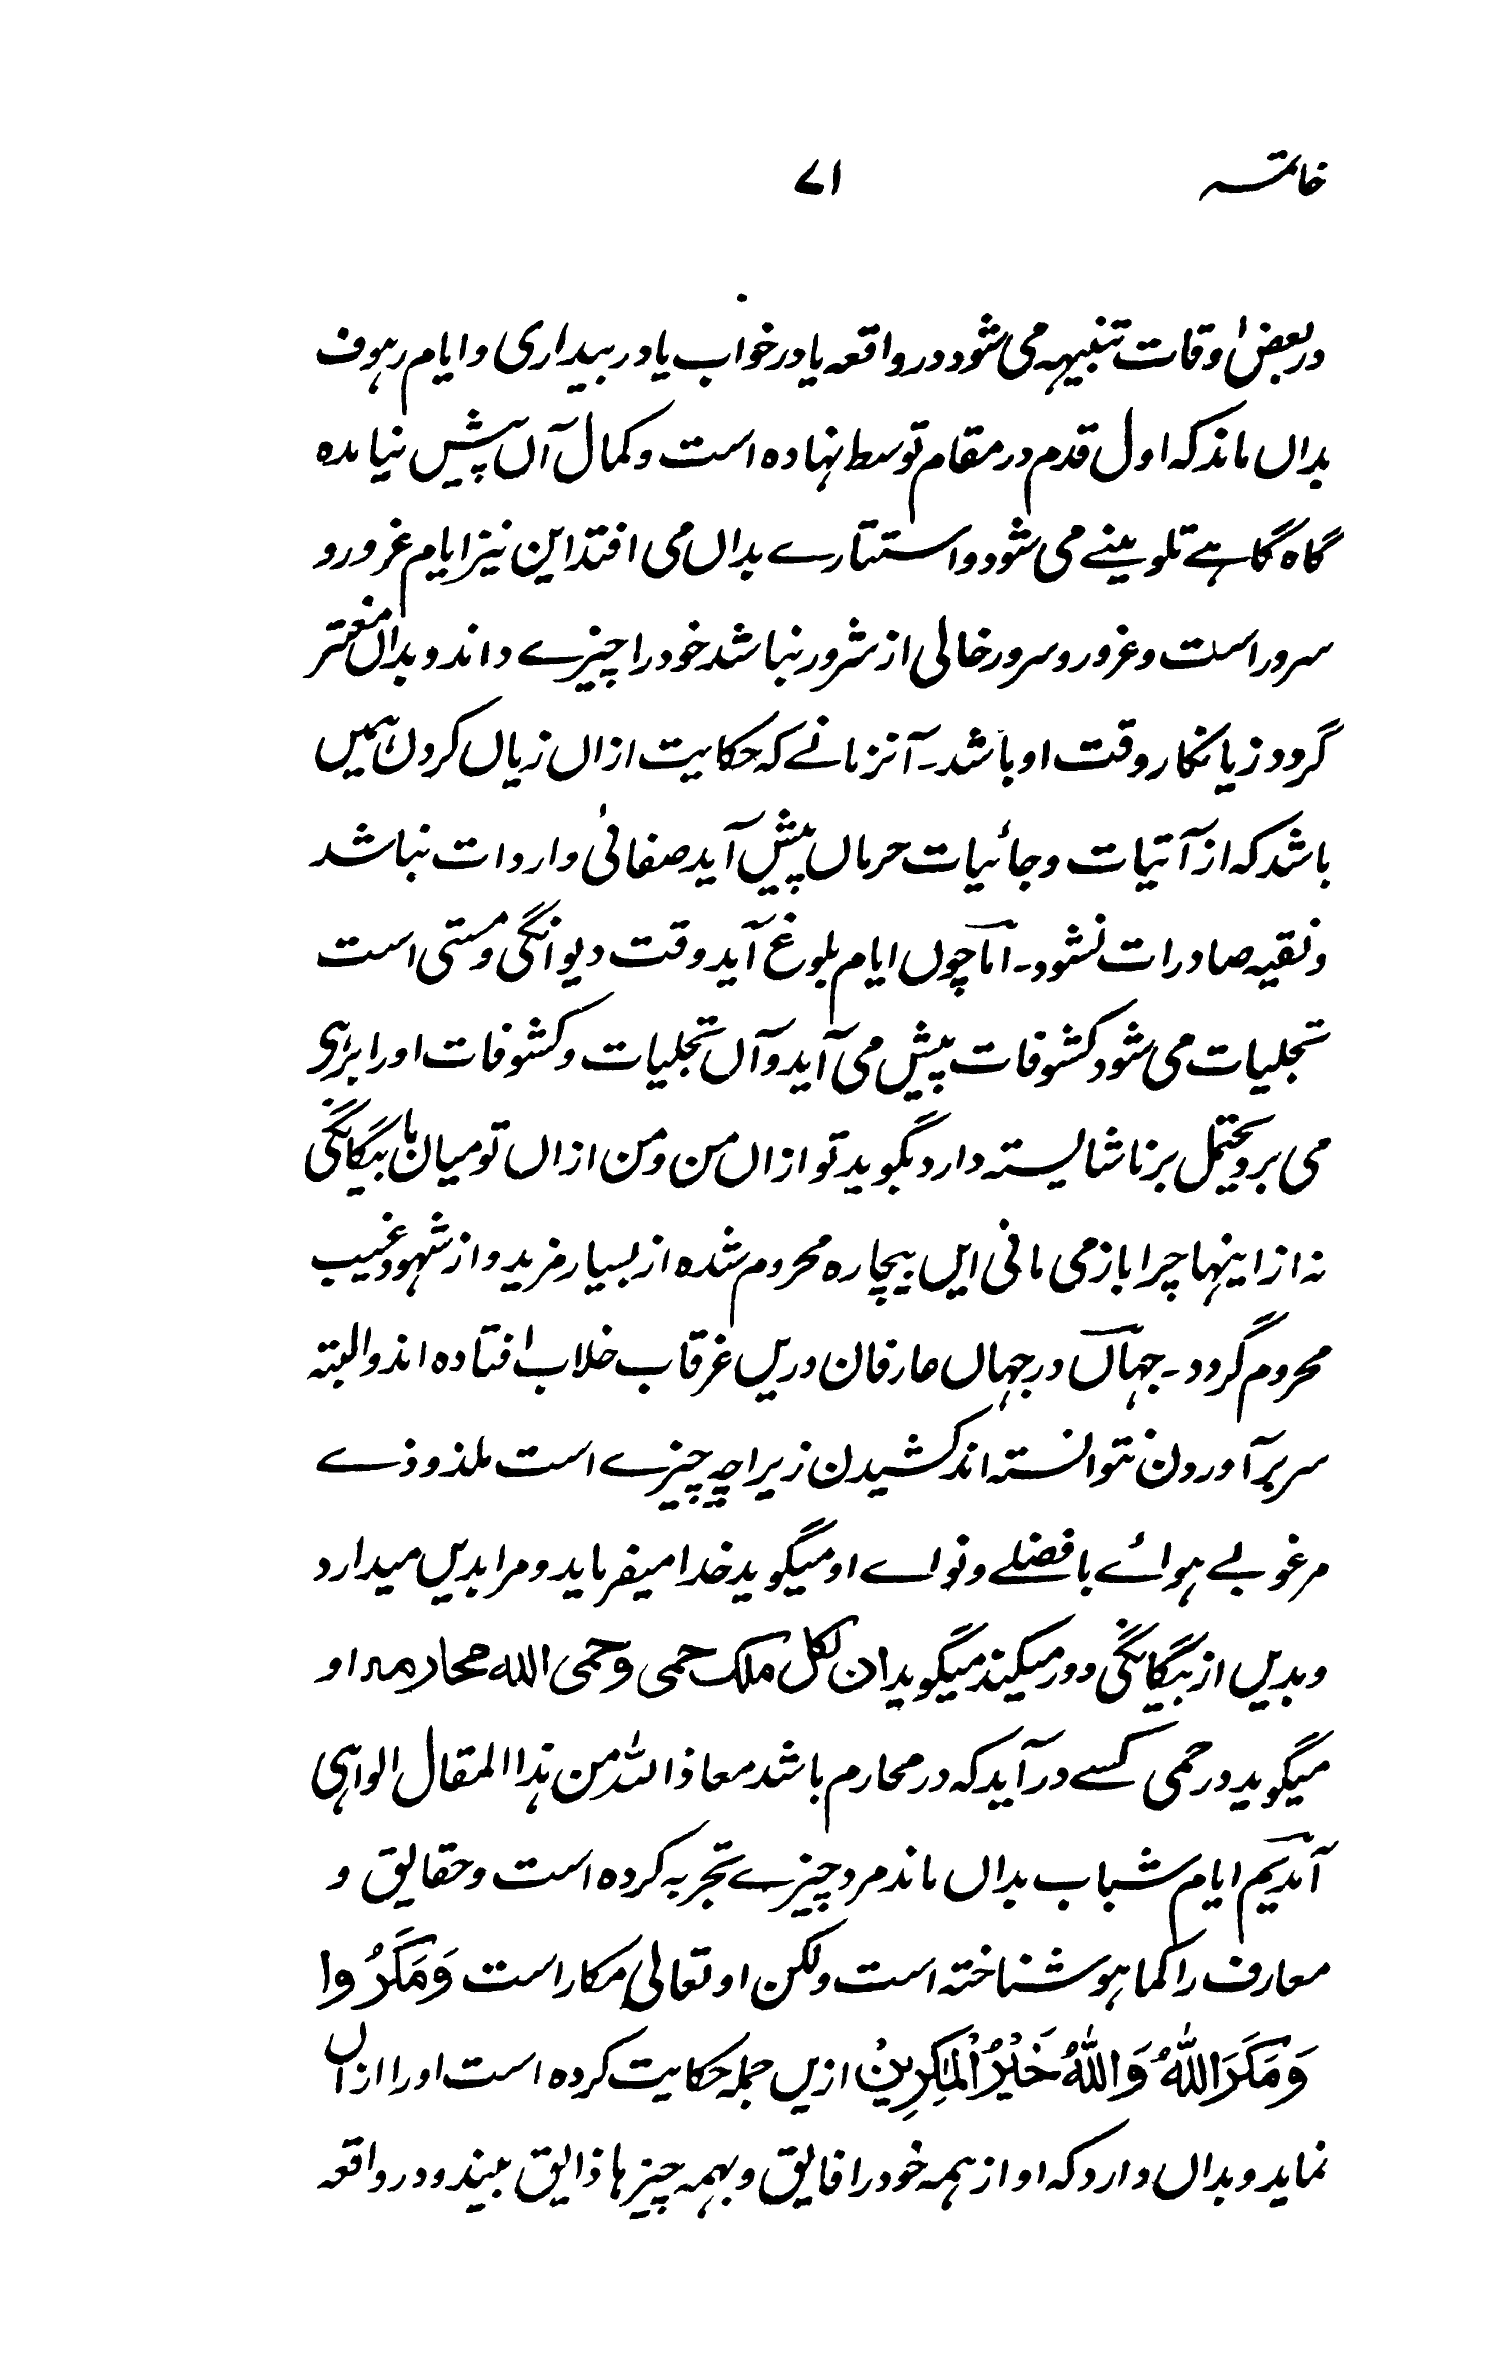 خاتمہ ۷۱
در بعض اوقات تنبیہہ می شود در واقعہ یا در خواب یا در بیداری و ایام رہوف
بداں ماند کہ اول قدم در مقام توسط نہادہ است و کمال آں پیش نیامدہ
گاہ گاہے تلوینے می شود و استتارے بداں می افتد این نیز ایام غرور و
سرور است و غرور و سرور خالی از شرور نباشد خود را چیزے داند و بداں مغتر
گردد زیانکار وقت او باشد۔ آنزمانے کہ حکایت ازاں زیاں کردن ہمیں
باشد کہ از آتیات و جائیات حرماں پیش آید صفائی واردات نباشد
و نقیہ صادرات نشود۔ اما چوں ایام بلوغ آید وقت دیوانگی و مستی است
تجلیات می شود کشوفات پیش می آید و آں تجلیات و کشوفات او را براہی
می برد یحتمل بر ناشایستہ دارد بگوید تو ازاں من و من ازاں تو میان ما بیگانگی
نہ از اینہا چرا باز می مانی ایں بیچارہ محروم شدہ از بسیار مزید و از شہود غیب
محروم گردد۔ جہاں در جہاں عارفان دریں غرقاب خلاب افتادہ اند و البتہ
سر بر آوردن نتوانستہ اند کشیدن زیرا چہ چیزے است ملذوذے
مرغوبے ہوائے با فضلے و نواے او میگوید خدا میفرماید و مرا بدیں میدارد
و بدیں از بیگانگی دور میکند میگوید ان لکل ملک حمی وحمی اللہ محارمہ او
میگوید در حمی کسے در آید کہ در محارم باشد معاذ اللہ من ہذا المقال الواہی
آمدیم ایام شباب بداں ماند مرد چیزے تجربہ کردہ است و حقایق و
معارف را کما ہو شناختہ است ولکن او تعالی مکار است وَمَکَرُوا
وَمَکَرَ اللّٰہُ وَاللّٰہُ خَیْرُ الْمَاکِرِیْنَ ازیں جملہ حکایت کردہ است او را ازاں
نماید و بداں دارد کہ او از ہمہ خود را فایق و بہمہ چیزہا ذایق بیند و در واقعہ